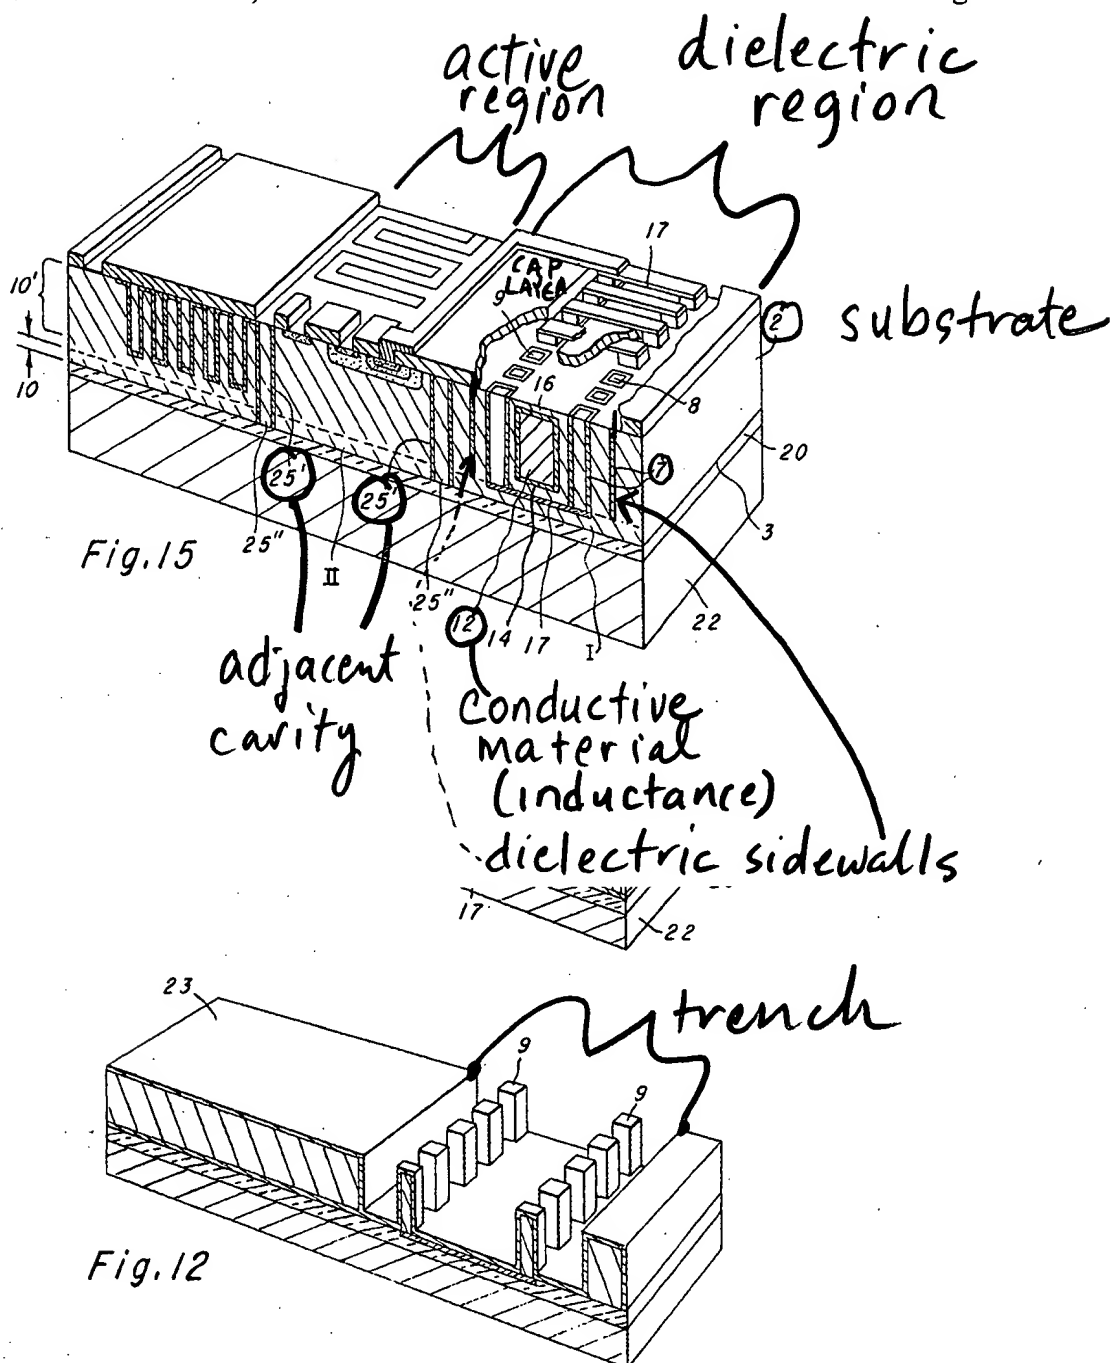 active
region
dielectric
region
17
CAP
LAYER
9
10'
2
substrate
16
8
10
7
20
25'
25'
3
Fig.15
25"
II
25"
12
14
17
I
22
adjacent
cavity
conductive
material
(inductance)
dielectric sidewalls
17
22
23
trench
9
9
Fig.12